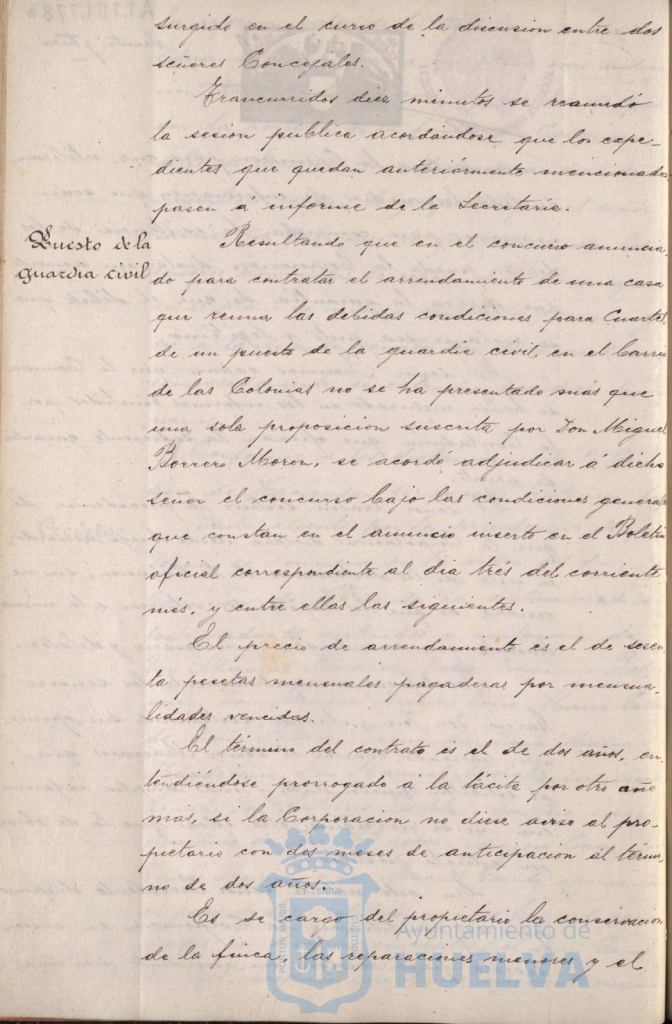 surgido en el curso de la discusion entre dos
señores Concejales.
Trancurridos diez minutos se reanudó
la sesion pública acordándose que los expe-
dientes que quedan anteriórmente mencionados
pasen a informe de la Secretaría.
Puesto de la
guardia civil
Resultando que en el concurso anuncia-
do para contratar el arrendamiento de una casa
que reuna las debidas condiciones para Cuartel
de un puesto de la guardia civil en el barrio
de las Colonias no se ha presentado más que
una sola proposicion suscrita por Don Miguel
Borrero Moron, se acordó adjudicar á dicho
señor el concurso bajo las condiciones generales
que constan en el anuncio inserto en el Boletin
oficial correspondiente al dia trés del corriente
més, y entre ellas las siguientes.
El precio de arrendamiento és el de sesen-
ta pesetas mensuales pagaderas por mensua-
lidades vencidas.
El término del contrato és el de dos años, en-
tendiéndose prorrogado á la tácita por otro año
más, si la Corporacion no diese aviso al pro-
pietario con dos meses de anticipacion al térmi-
no de dos años.
Es de cargo del propietario la conservacion
de la finca, las reparaciones menores y el
Ayuntamiento de
HUELVA